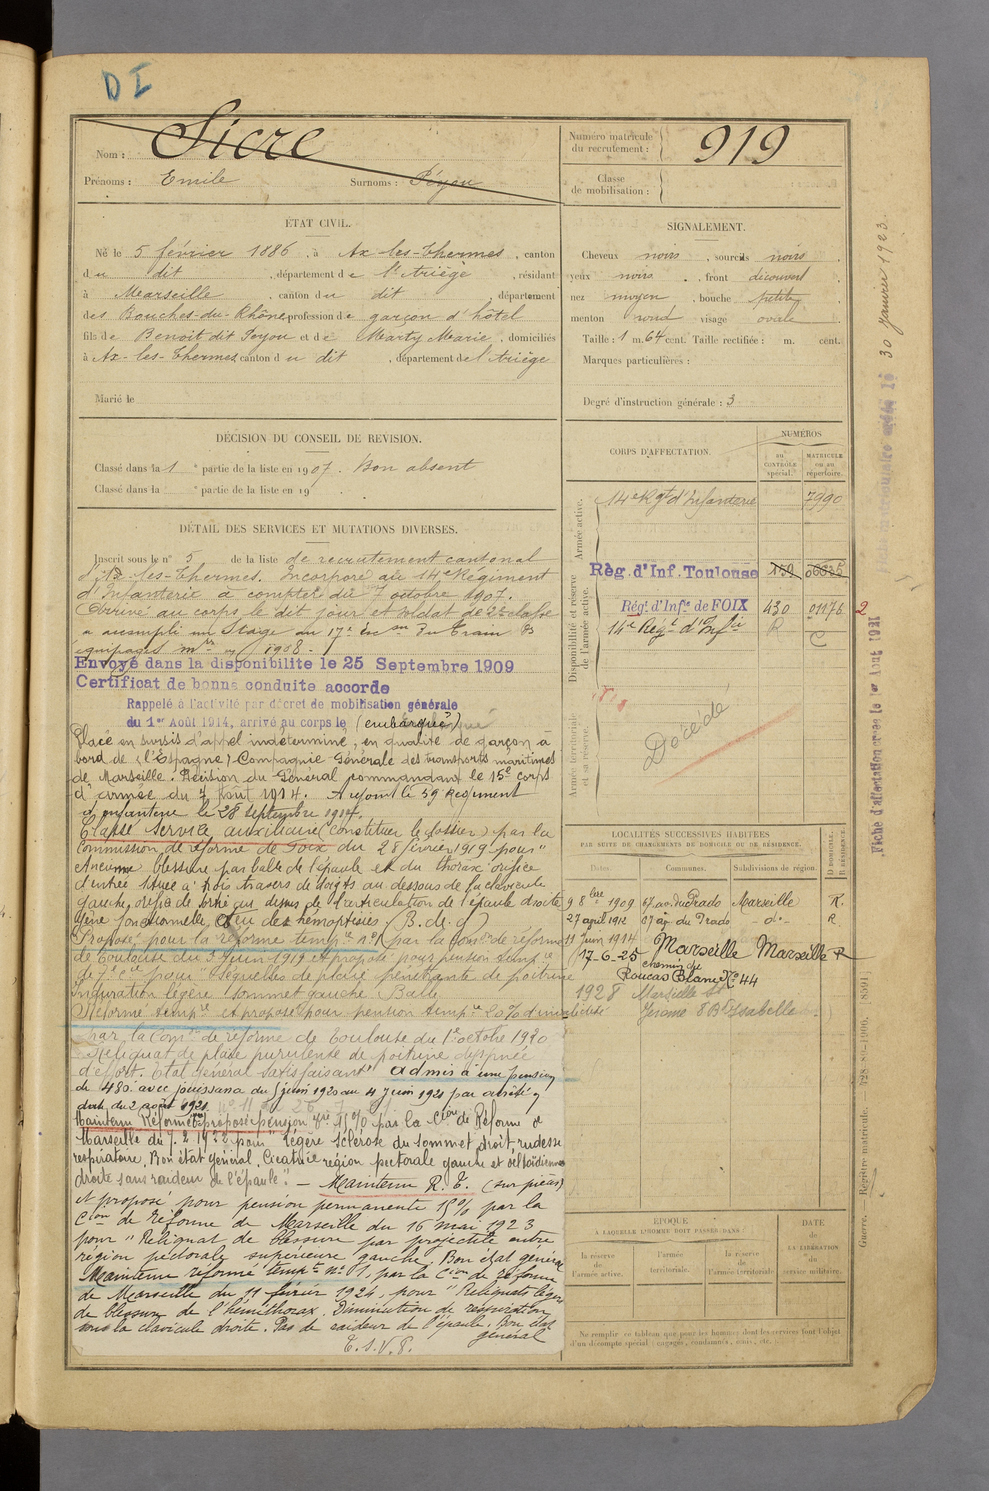 D I
Nom : Sicre
Prénoms : Emile Surnoms : Péyou
Numéro matricule du recrutement : 919
Classe de mobilisation :
ÉTAT CIVIL.
Né le 5 février 1886, à Ax-les-Thermes, canton
du dit, département de l'Ariège, résidant
à Marseille, canton du dit, département
des Bouches-du-Rhône profession de garçon d'hôtel
fils de Benoit dit Peyou et de Marty Marie, domiciliés
à Ax-les-Thermes, canton du dit, département de l'Ariège
Marié le
DÉCISION DU CONSEIL DE REVISION.
Classé dans la 1e partie de la liste en 1907. Bon absent
Classé dans la e partie de la liste en 19 .
DÉTAIL DES SERVICES ET MUTATIONS DIVERSES.
Inscrit sous le n° 5 de la liste de recrutement cantonal
d'Ax-les-Thermes. Incorporé au 14e Régiment
d'Infanterie à compter du 7 octobre 1907.
Arrivé au corps le dit jour et soldat de 2e classe
a accompli un Stage au 17e Eson du Train des
équipages mres en 1908.
Envoyé dans la disponibilite le 25 Septembre 1909
Certificat de bonne conduite accorde
Rappelé à l'activité par décret de mobilisation générale
du 1er Août 1914, arrivé au corps le (embarqué)
Placé en sursis d'appel indéterminé, en qualité de garçon à
bord de (l'Espagne) Compagnie Générale des transports maritimes
de Marseille. Décision du Général commandant le 15e corps
d'armée du 7 Août 1914. A rejoint le 59 Régiment
d'infanterie le 28 septembre 1914.
Classé Service auxiliaire (constituer le dossier) par la
Commission de réforme de Foix du 28 février 1919 pour "
Ancienne blessure par balle de l'épaule et du thorax orifice
d'entrée situé à trois travers de doigts au dessous de la clavicule
gauche, orifice de sortie au dessus de l'articulation de l'épaule droite
gêne fonctionnelle, a eu des hémoptisies (B. de g)
Proposé pour la réforme tempre n°1 par la Comon de réforme
de Toulouse du 5 Juin 1919 et proposé pour pension tempre
de 7e cie pour "séquelles de plaie pénétrante de poitrine
Induration légère sommet gauche. Balle
Réformé tempre et proposé pour pension tempre 20% d'invalidité
par la Comon de réforme de Toulouse du 1er octobre 1920
Reliquat de plaie purulente de poitrine dyspnée
d'effort. Etat général satisfaisant" admis à une pension
de 480 avec jouissance du 5 juin 1920 au 4 juin 1921 par arrêté en
date du 2 août 1921
Maintenu Réformé tre proposé pension tre 15% par la Cion de Réforme de
Marseille du 7.2.1922 pour "Légère sclérose du sommet droit, rudesse
respiratoire. Bon état général. Cicatrice région pectorale gauche et deltoïdienne
droite sans raideur de l'épaule". – Maintenu R. T. (sur pièces)
et proposé pour pension permanente 15% par la
Cion de réforme de Marseille du 16 mai 1923
pour "Reliquat de blessure par projectile entrée
région pectorale supérieure gauche. Bon état général
Maintenu réformé tempre n° 1, par la Cion de réforme
de Marseille du 11 février 1924, pour "Reliquats légers
de blessure de l'hémithorax. Diminution de respiration
sous la clavicule droite. Pas de raideur de l'épaule. Bon état
général
T. S. V. P.
SIGNALEMENT.
Cheveux noirs, sourcils noirs
yeux noirs, front découvert
nez moyen, bouche petite
menton rond visage ovale
Taille : 1 m. 64 cent. Taille rectifiée : m. cent.
Marques particulières :
Degré d'instruction générale : 3
CORPS D'AFFECTATION.
NUMÉROS
au CONTRÔLE spécial.
MATRICULE ou au répertoire.
Armée active.
14e Rgt d'Infanterie 7990
Disponibilité et réserve de l'armée active.
Règ. d'Inf. Toulouse 159
Régt. d'Infie de FOIX 430 01176 2
14e Régt d'Infie R C
Armée territoriale et sa réserve.
Décédé
LOCALITÉS SUCCESSIVES HABITÉES
PAR SUITE DE CHANGEMENTS DE DOMICILE OU DE RÉSIDENCE.
Dates. Communes. Subdivisions de région. D DOMICILE. R RÉSIDENCE.
8 8bre 1909 67, av. du Prado Marseille R.
27 april 1912 67 av. du Prado - d° - R
11 Juin 1914
17-6-25 Marseille Marseille R
chemin du
Roucas Blanc No 44
1928 Marseille
Jerome 8 Bd Isabelle
ÉPOQUE
À LAQUELLE L'HOMME DOIT PASSER DANS :
la réserve de l'armée active.
l'armée territoriale.
la réserve de l'armée territoriale
DATE de LA LIBÉRATION du service militaire.
Ne remplir ce tableau que pour les hommes dont les services font l'objet
d'un décompte spécial : engagés, condamnés, omis, etc.
30 Janvier 1923
Fiche d'affectation créée le 1er Aout 1921
Guerre. — Registre matricule. — 328-89-1906. [8591]